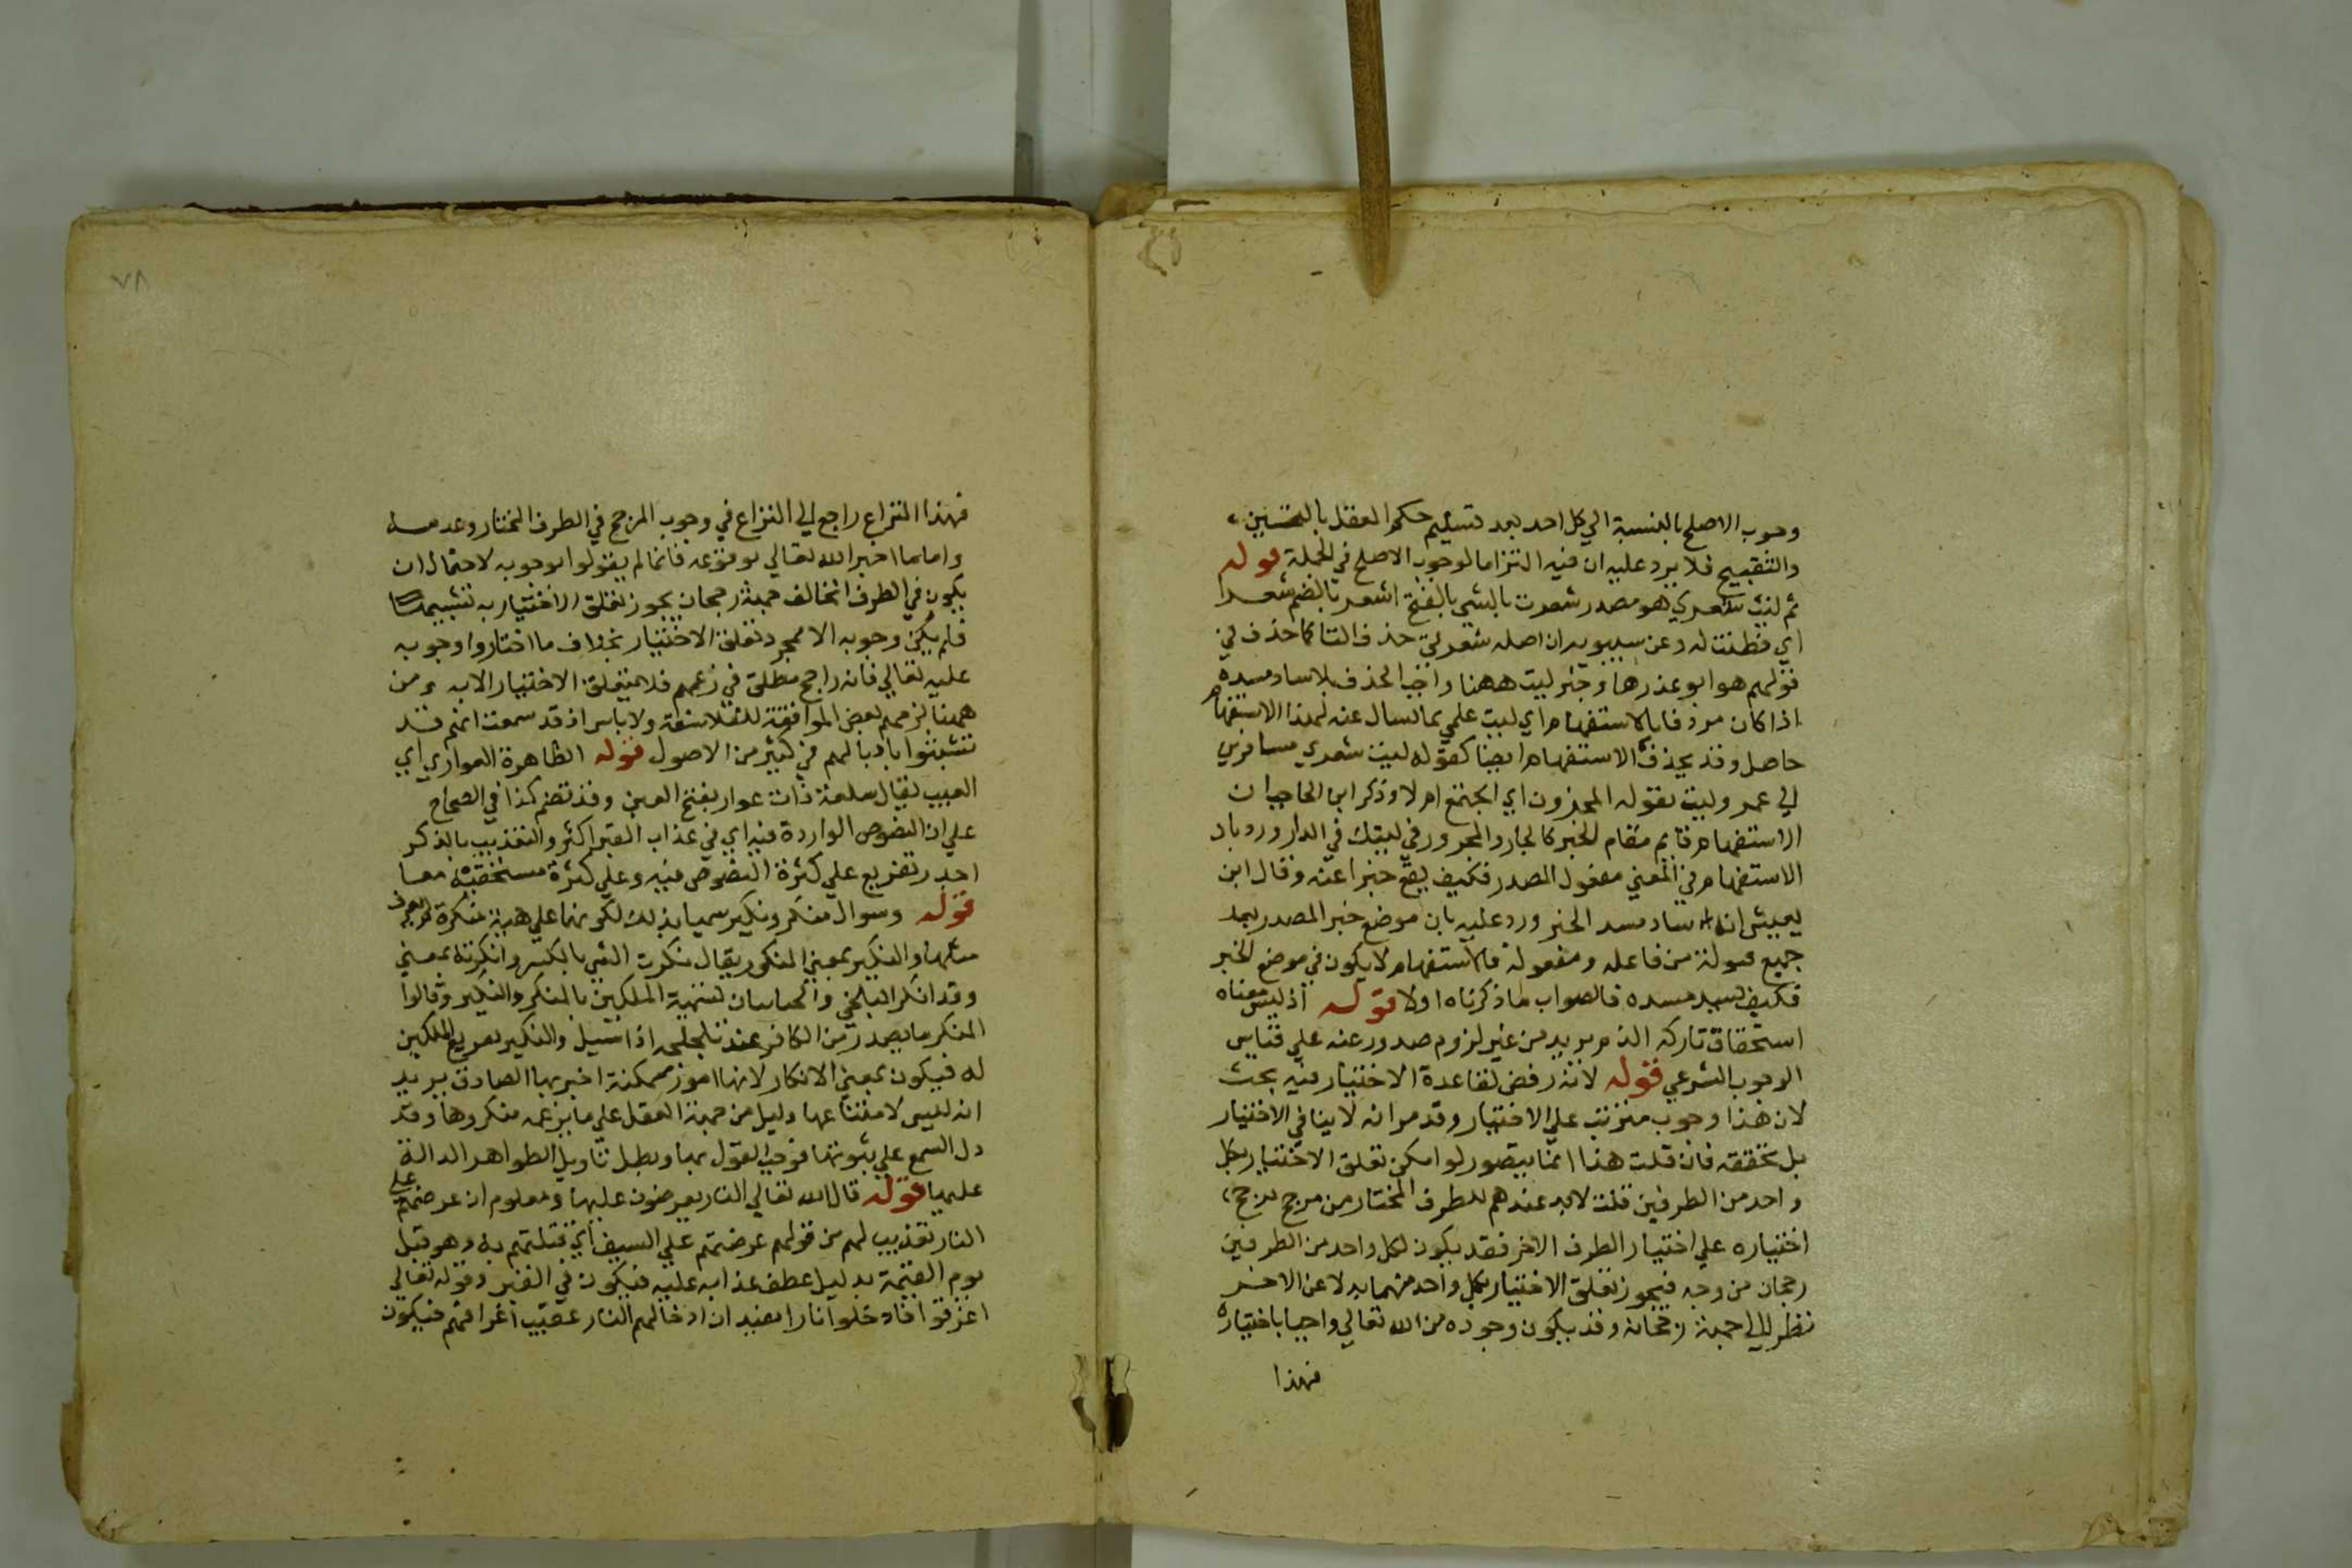 وجوب الاصلح بالنسبة الي كل احد بعد تسليم حكم العقل بالتحسين
والتقبيح فلا يرد عليه ان فيه التزاما لوجوب الاصلح في الجملة قوله
ثم ليت شعري هو مصدر شعرت بالشي بالفتح اشعر بالضم شعرا
اي فطنت له وعن سيبويه ان اصله شعرتي حذف التا كما حذف في
قولهم هو ابو عذرها وخبر ليت ههنا واجب الحذف بلا ساد مسده
اذا كان مردفا بالاستفهام اي ليت علمي بما يسال عنه لهذا الاستفهام
حاصل وقد يحذف الاستفهام ايضا كقوله ليت شعري مسافر بن
ابي عمر وليت يقوله المحزون اي اجتمع ام لا وذكر ابن الحاجب ان
الاستفهام قايم مقام الخبر كالجار والمجرور في ليتك في الدار ورد بان
الاستفهام في المعني مفعول المصدر فكيف يقع خبرا عنه وقال ابن
يعيش انه ساد مسد الخبر ورد عليه بان موضع خبر المصدر بعد
جميع صلته من فاعله ومفعوله فالاستفهام لا يكون في موضع الخبر
فكيف يسد مسده فالصواب ما ذكرناه اولا قوله اذ ليس معناه
استحقاق تاركه الذم يريد من غير لزوم صدور عنه علي قياس
الوجوب الشرعي قوله لانه رفض لقاعدة الاختيار فيه بحث
لان هذا وجوب مترتب علي الاختيار وقد مر انه لا ينافي الاختيار
بل يحققه فان قلت هذا انما يتصور لو امكن تعلق الاختيار بكل
واحد من الطرفين قلت لابد عندهم للطرف المختار من مرجح يرجح
اختياره علي اختيار الطرف الاخر فقد يكون لكل واحد من الطرفين
رجحان من وجه فيجوز تعلق الاختيار بكل واحد منهما بدلا عن الاخر
نظر الي جهة رجحانه وقد يكون وجوده من الله تعالي واجبا باختياره
فهذا
٧٨
فهذا النزاع راجع الي النزاع في وجوب المرجح في الطرف المختار وعدمه
واما ما اخبر الله تعالي بوقوعه فانما لم يقولوا بوجوبه لاحتمال ان
يكون في الطرف المخالف جهة رجحان يجوز تعلق الاختيار به
فلم يكن وجوبه الا مجرد تعلق الاختيار بخلاف ما اختاروا وجوبه
عليه تعالي فانه راجح مطلق في زعمهم فلا يتعلق الاختيار الا به ومن
ههنا لزمهم بعض الموافقة للفلاسفة ولا باس اذ قد سمعت انهم قد
تشبثوا باذيالهم في كثير من الاصول قوله الظاهرة العواري اي
العيب يقال سلعة ذات عوار بفتح العين وقد تضم كذا في الصحاح
علي ان النصوص الواردة فيه اي في عذاب القبر اكثر والتعذيب بالذكر
اجدر تفريع علي كثرة النصوص فيه وعلي كثرة مستحقيه معا
قوله وسوال منكر ونكير سميا بذلك لكونهما علي هيئة منكرة لم يعرف
مثلها والنكير بمعني المنكور يقال نكرت الشي بالكسر وانكرته بمعني
وقد انكر البلخي والجباييان تسمية الملكين بالمنكر والنكير وقالوا
المنكر ما يصدر من الكافر عند تلجلجه اذا سيل والنكير تقريع الملكين
له فيكون بمعني الانكار لانها امور ممكنة اخبر بها الصادق يريد
انه ليس لامتناعها دليل من جهة العقل علي ما يزعمه منكروها وقد
دل السمع علي ثبوتها فوجب القول بها وبطل تاويل الظواهر الدالة
عليها قوله قال الله تعالي النار يعرضون عليها ومعلوم ان عرضهم علي
النار تعذيب لهم من قولهم عرضتهم علي السيف اي قتلتهم به وهو قبل
يوم القيمة بدليل عطف عذابه عليه فيكون في القبر وقوله تعالي
اغرقوا فادخلوا نارا يفيد ان ادخالهم النار عقيب اغراقهم فيكون